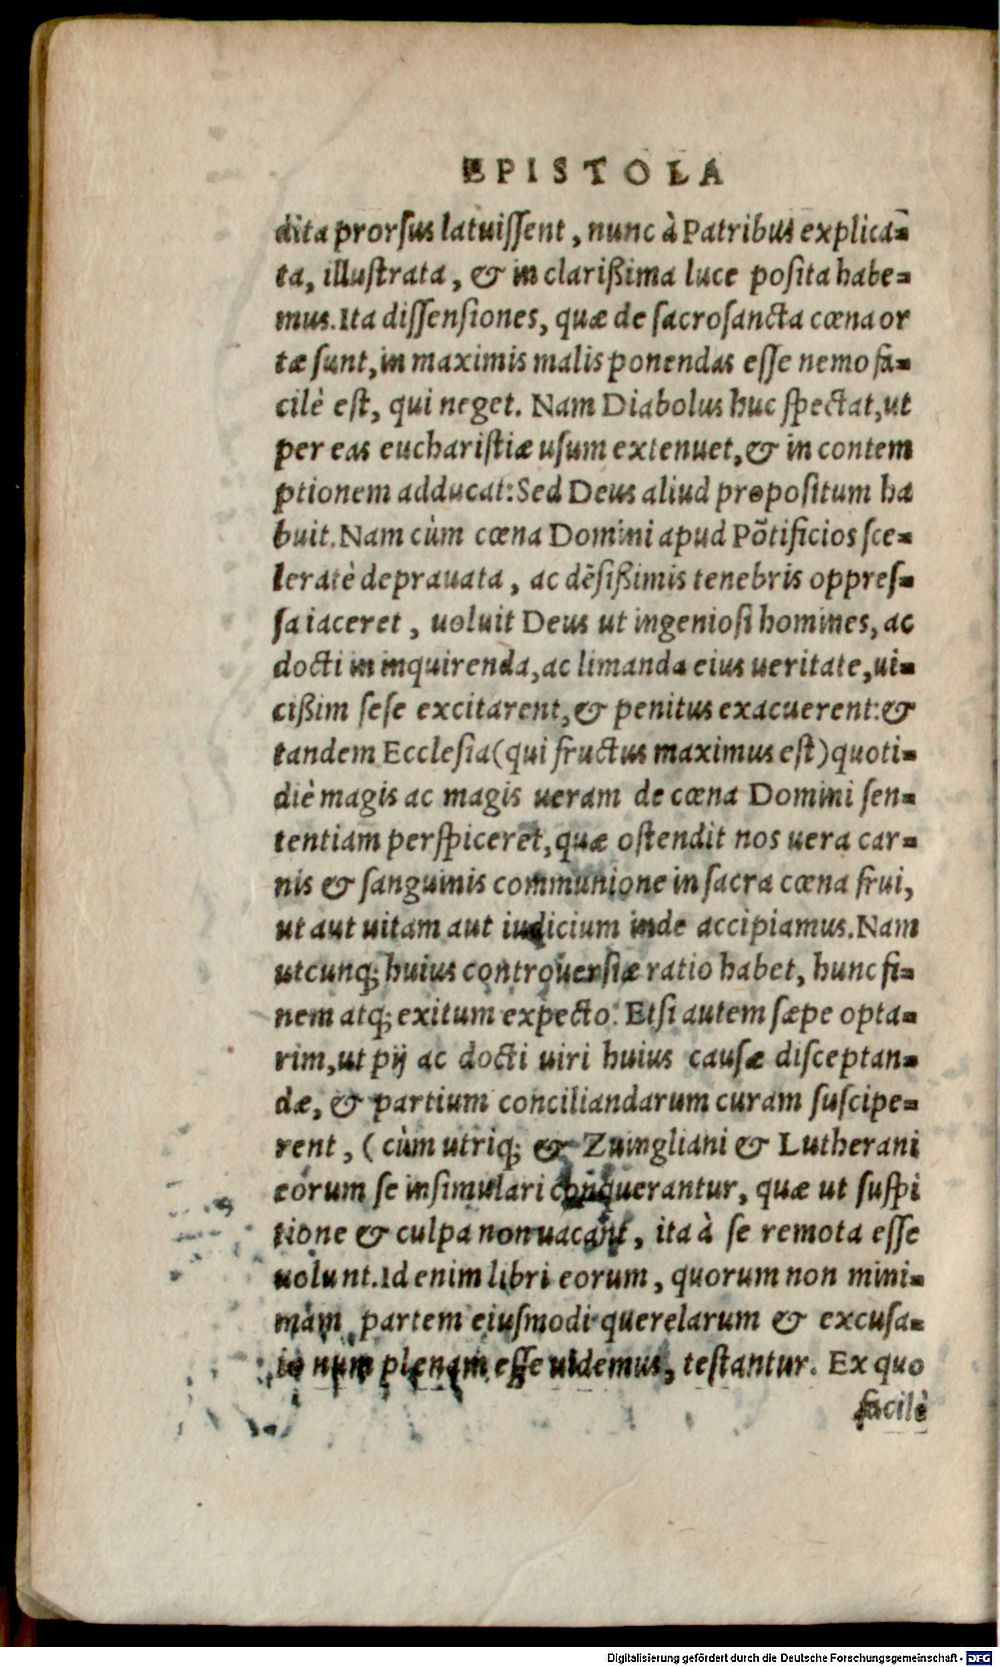 EPISTOLA
dita prorsus latuissent, nunc à Patribus explica=
ta, illustrata, & in clarißima luce posita habe=
mus. Ita dissensiones, quæ de sacrosancta cœna or
tæ sunt, in maximis malis ponendas esse nemo fa=
cilè est, qui neget. Nam Diabolus huc spectat, ut
per eas eucharistiæ usum extenuet, & in contem
ptionem adducat: Sed Deus aliud propositum ha
buit. Nam cùm cœna Domini apud Põtificios sce=
leratè deprauata, ac dẽsißimis tenebris oppres=
sa iaceret, uoluit Deus ut ingeniosi homines, ac
docti in inquirenda, ac limanda eius ueritate, ui=
cißim sese excitarent, & penitus exacuerent: &
tandem Ecclesia (qui fructus maximus est) quoti=
diè magis ac magis ueram de cœna Domini sen=
tentiam perspiceret, quæ ostendit nos uera car=
nis & sanguinis communione in sacra cœna frui,
ut aut uitam aut iudicium inde accipiamus. Nam
utcunq; huius controuersiæ ratio habet, hunc fi=
nem atq; exitum expecto. Etsi autem sæpe opta=
rim, ut pij ac docti uiri huius causæ disceptan=
dæ, & partium conciliandarum curam suscipe=
rent, (cùm utriq; & Zuingliani & Lutherani
eorum se insimulari conquerantur, quæ ut suspi
tione & culpa non uacant, ita à se remota esse
uolunt. Id enim libri eorum, quorum non mini=
mam partem eiusmodi querelarum & excusa=
io num plenam esse uidemus, testantur. Ex quo
facilè
Digitalisierung gefördert durch die Deutsche Forschungsgemeinschaft - DFG